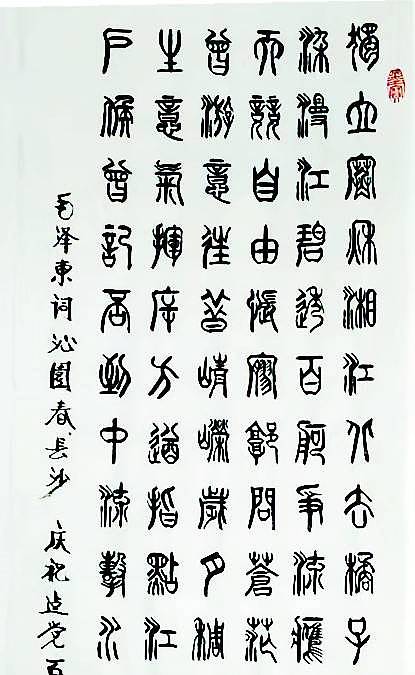 獨立寒秋湘江北去橘子
染漫江碧透百舸爭流鷹
而競自由悵廖郭問蒼茫
曾游意往昔崢嶸歲月稠
生意氣揮斥方遒指點江
戶侯曾記否到中流擊水
毛泽東词沁園春·長沙 庆祝建党百